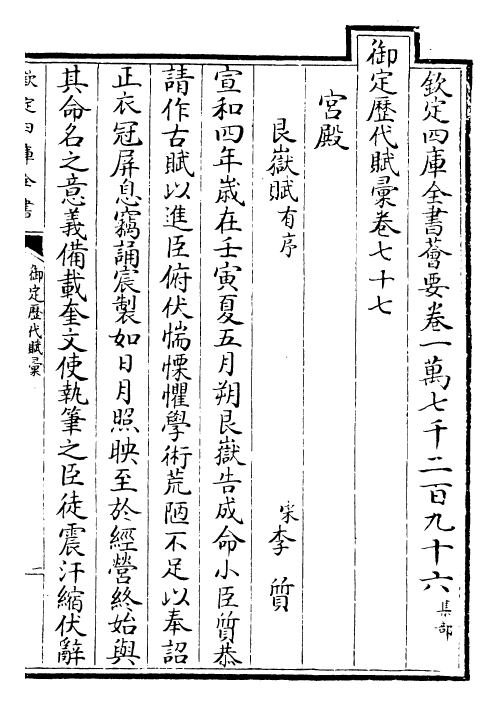 欽定四庫全書薈要卷一萬七千二百九十六集部
御定歷代賦彙卷七十七
宮殿
艮嶽賦有序 宋李質
宣和四年嵗在壬寅夏五月朔艮嶽告成命小臣質恭
請作古賦以進臣俯伏惴慄懼學術荒陋不足以奉詔
正衣冠屏息竊誦宸製如日月照映至於經營終始與
其命名之意義備載奎文使執筆之臣徒震汗縮伏辭
欽定四庫全書 御定歷代賦彙 一